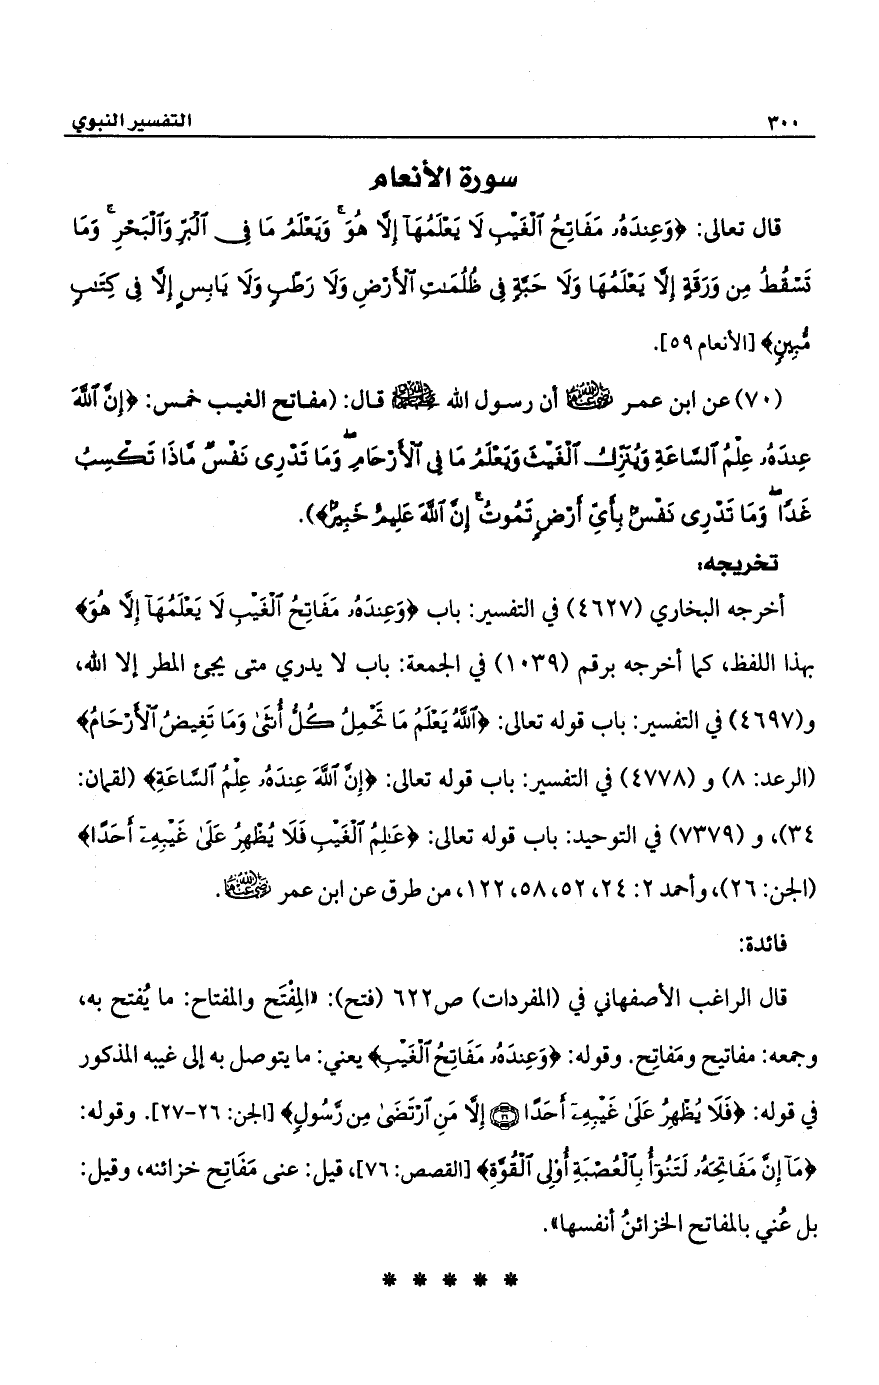 ٣٠٠ التفسير النبوي
سورة الأنعام
قال تعالى: ﴿وَعِندَهُۥ مَفَاتِحُ ٱلْغَيْبِ لَا يَعْلَمُهَآ إِلَّا هُوَ ۚ وَيَعْلَمُ مَا فِى ٱلْبَرِّ وَٱلْبَحْرِ ۚ وَمَا
تَسْقُطُ مِن وَرَقَةٍ إِلَّا يَعْلَمُهَا وَلَا حَبَّةٍ فِى ظُلُمَـٰتِ ٱلْأَرْضِ وَلَا رَطْبٍ وَلَا يَابِسٍ إِلَّا فِى كِتَـٰبٍ
مُّبِينٍ﴾ [الأنعام ٥٩].
(٧٠) عن ابن عمر رضي الله عنهما أن رسول الله ﷺ قال: (مفاتح الغيب خمس: ﴿إِنَّ ٱللَّهَ
عِندَهُۥ عِلْمُ ٱلسَّاعَةِ وَيُنَزِّلُ ٱلْغَيْثَ وَيَعْلَمُ مَا فِى ٱلْأَرْحَامِ ۖ وَمَا تَدْرِى نَفْسٌ مَّاذَا تَكْسِبُ
غَدًا ۖ وَمَا تَدْرِى نَفْسٌۢ بِأَىِّ أَرْضٍ تَمُوتُ ۚ إِنَّ ٱللَّهَ عَلِيمٌ خَبِيرٌۢ﴾).
تخريجه:
أخرجه البخاري (٤٦٢٧) في التفسير: باب ﴿وَعِندَهُۥ مَفَاتِحُ ٱلْغَيْبِ لَا يَعْلَمُهَآ إِلَّا هُوَ﴾
بهذا اللفظ، كما أخرجه برقم (١٠٣٩) في الجمعة: باب لا يدري متى يجئ المطر إلا الله،
و(٤٦٩٧) في التفسير: باب قوله تعالى: ﴿ٱللَّهُ يَعْلَمُ مَا تَحْمِلُ كُلُّ أُنثَىٰ وَمَا تَغِيضُ ٱلْأَرْحَامُ﴾
(الرعد: ٨) و (٤٧٧٨) في التفسير: باب قوله تعالى: ﴿إِنَّ ٱللَّهَ عِندَهُۥ عِلْمُ ٱلسَّاعَةِ﴾ (لقمان:
٣٤)، و (٧٣٧٩) في التوحيد: باب قوله تعالى: ﴿عَـٰلِمُ ٱلْغَيْبِ فَلَا يُظْهِرُ عَلَىٰ غَيْبِهِۦٓ أَحَدًا﴾
(الجن: ٢٦)، وأحمد ٢: ٢٤، ٥٢، ٥٨، ١٢٢، من طرق عن ابن عمر رضي الله عنهما.
فائدة:
قال الراغب الأصفهاني في (المفردات) ص٦٢٢ (فتح): «المِفْتَح والمفتاح: ما يُفتح به،
وجمعه: مفاتيح ومَفاتِح. وقوله: ﴿وَعِندَهُۥ مَفَاتِحُ ٱلْغَيْبِ﴾ يعني: ما يتوصل به إلى غيبه المذكور
في قوله: ﴿فَلَا يُظْهِرُ عَلَىٰ غَيْبِهِۦٓ أَحَدًا ۝٢٦ إِلَّا مَنِ ٱرْتَضَىٰ مِن رَّسُولٍ﴾ [الجن: ٢٦-٢٧]. وقوله:
﴿مَآ إِنَّ مَفَاتِحَهُۥ لَتَنُوٓأُ بِٱلْعُصْبَةِ أُو۟لِى ٱلْقُوَّةِ﴾ [القصص: ٧٦]، قيل: عنى مَفَاتِح خزائنه، وقيل:
بل عُني بالمفاتح الخزائنُ أنفسها».
* * * * *